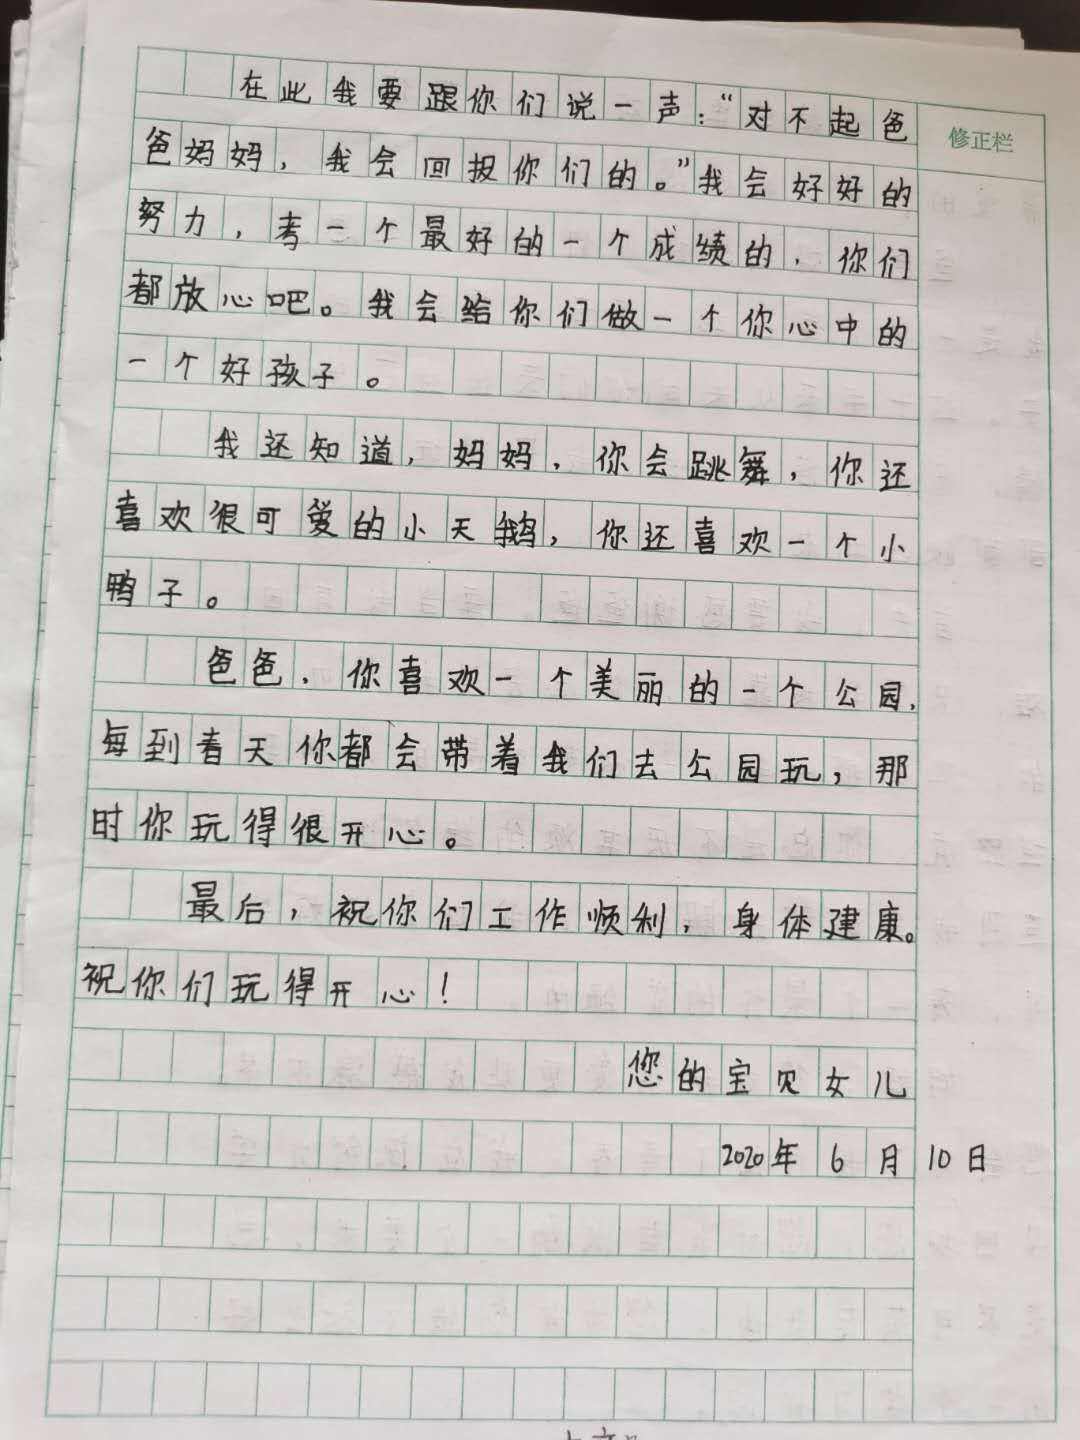 在此我要跟你们说一声：“对不起爸
修正栏
爸妈妈，我会回报你们的。”我会好好的
努力，考一个最好的一个成绩的，你们
都放心吧。我会给你们做一个你心中的
一个好孩子。
我还知道，妈妈，你会跳舞，你还
喜欢很可爱的小天鹅，你还喜欢一个小
鸭子。
爸爸，你喜欢一个美丽的一个公园，
每到春天你都会带着我们去公园玩，那
时你玩得很开心。
最后，祝你们工作顺利，身体建康。
祝你们玩得开心！
您的宝贝女儿
2020年6月10日